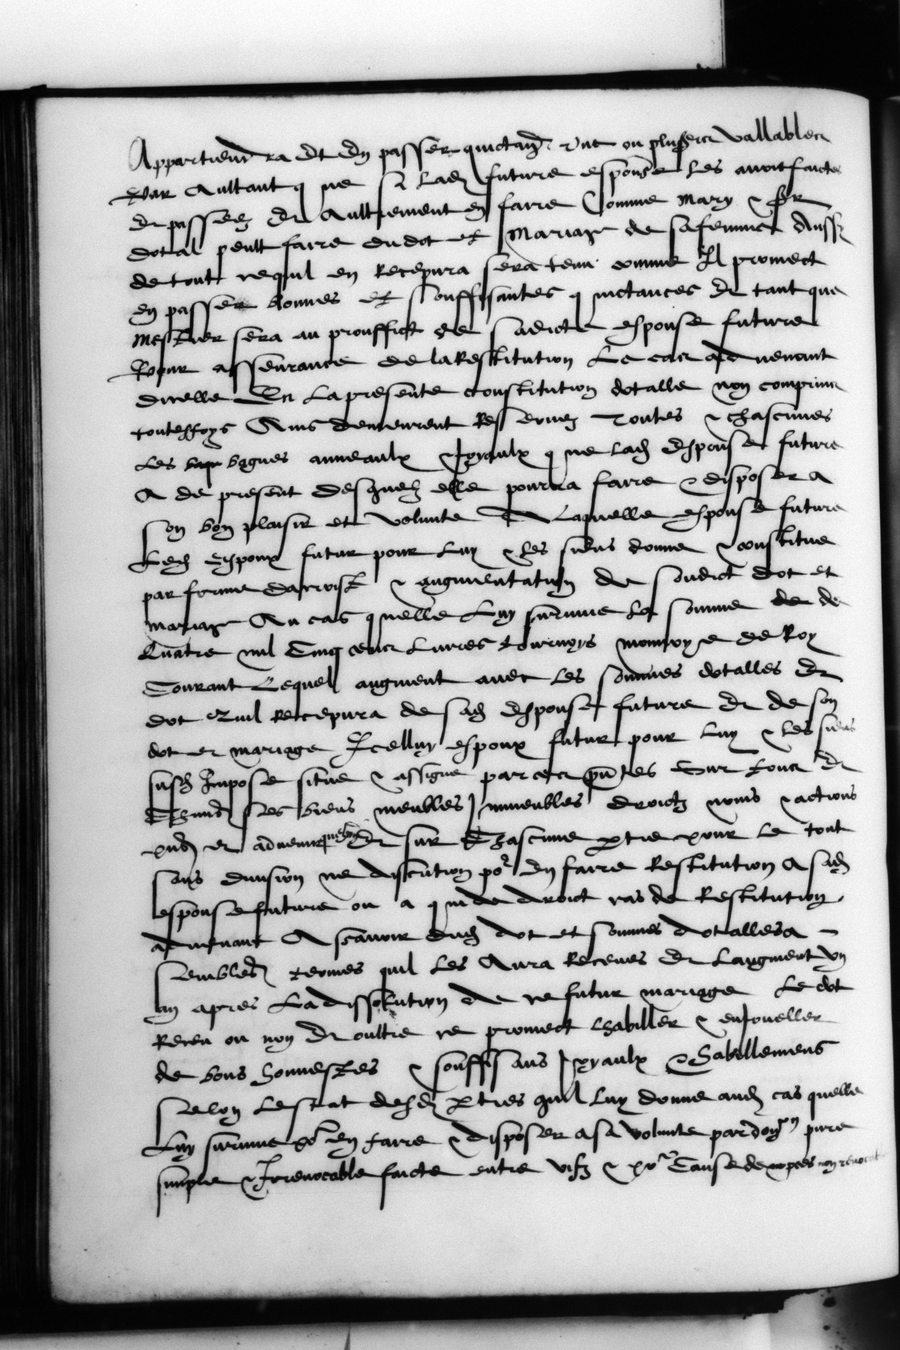 Appartiendra Et En passer quictance vne ou plusieurs vallables
Par Aultant que si lad future espouse les auoit faictes
et passees Et Aultrement en faire Comme Mary &
dotal peult faire du dot et Mariage de sa femme Aussi
de tout ce quil en Recepura sera tenu comme Il promect
en passer bonnes et souffisantes quictances Et tant que
Mestier sera au prouffict de sadicte espouse future
Pour asseurance de la Restitution Le cas aduenant
dicelle En La presente constitution dotalle non comprins
toutesfoys Ains demeurent Reseruez Toutes & chascunes
Les bagues anneaulx & Joyaulx que lad Espouse future
A de present desquelz elle pourra faire & disposer A
son bon plaisir et volunte A Laquelle espouse future
Led Espoux futur pour Luy & les siens donne & constitue
par forme daccroist & augmentation de soudict dot et
mariage Au cas quelle Luy suruiue La somme de
Quatre mil Cinq cens Liures tournoys monnoye de Roy
Courant Lequel augment auec les sommes dotalles Et
dot Quil Recepura de sad Espouse future Et de son
dot et mariage Icelluy espoux futur pour Luy & les siens
susd Impose situe & assigne par ces pntes Sur tous Et
Chacuns ses biens meubles Immeubles droictz noms & actions
pns et aduenir quelzconques Et sur Chascune ptie pour le tout
sans diuision ne discution por En faire Restitution A sad
espouse future ou a qui de droict cas de Restitution
aduenant A scauoir dud dot et sommes dotalles A
semblables termes quil les Aura Receues Et Laugment Vn
an apres La dissolution de ce futur mariage Le dot
Receu ou non Et oultre ce promect Lhabiller & enioueller
de bons honnestes & souffisans Joyaulx & habillemens
selon Lestat desd pties quil Luy donne aud cas quelle
Luy suruiue por en faire & disposer a sa volunte par donation pure
simple & Irreuocable faicte entre vifz & por Cause de nopces non reuocable